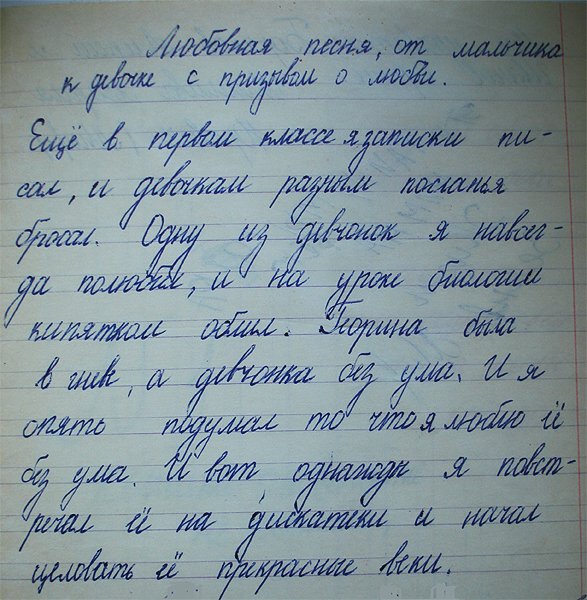 Любовная песня, от мальчика
к девочке с призывом о любви.
Ещё в первом классе я записки пи-
сал, и девочкам разным посланья
бросал. Одну из девчонок я навсег-
да полюбил, и на уроке биологии
кипятком облил. Горина была
в гневе, а девчонка без ума. И я
опять подумал то что я люблю её
без ума. И вот однажды я повст-
речал её на дискатеки и начал
целовать её прекрасные веки.